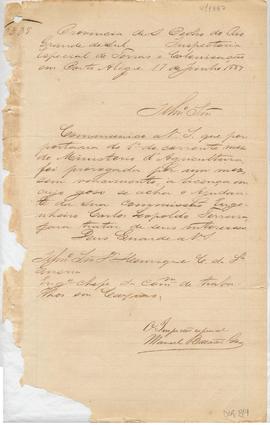 Provincia de S. Pedro do Rio
Grande do Sul, Inspectoria
especial de Terras e Colonisação
em Porto Alegre 17 de Junho 1887
Illmo Snr
Communico a V. S. que por
portaria do 1º do corrente mez
do Ministerio d'Agricultura
foi prorogada por um mez,
sem vencimento, a licença em
cujo goso se acha o Ajudan-
te da sua commissão Enge-
nheiro Carlos Leopoldo
para tratar de seus interesses
Deus Guarde a V. S.
Illmo Snr Dr Henrique C. de
Engº Chefe da Comm. de traba-
lhos em Caxias
O Inspector especial
Manoel